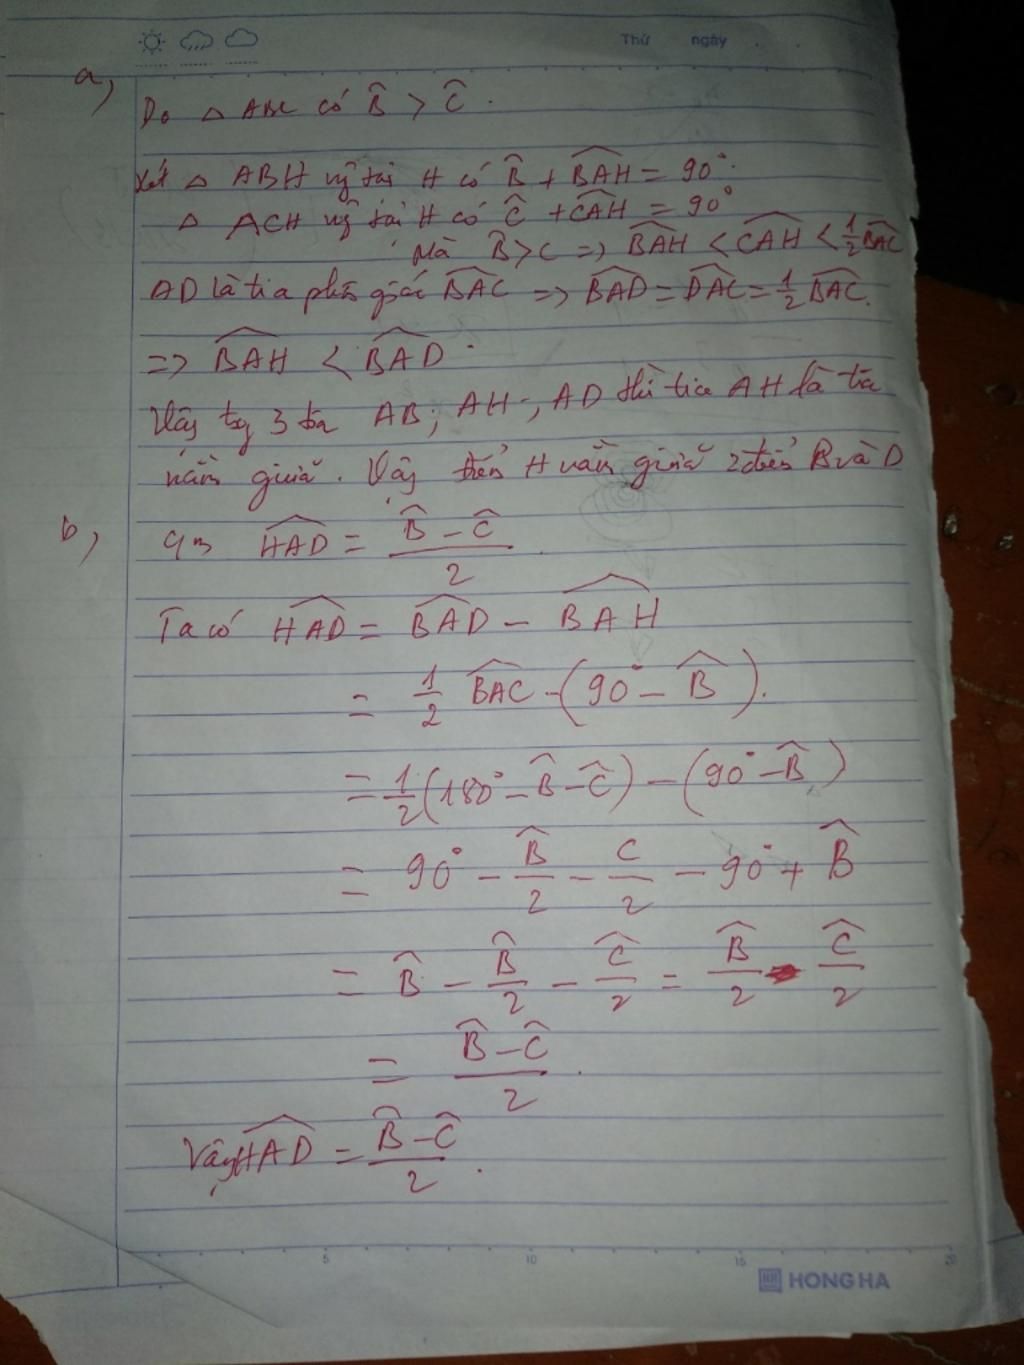 Thứ ngày
a,
Do △ ABC có B̂ > Ĉ.
Xét △ ABH vg tại H có B̂ + \widehat{BAH} = 90°.
△ ACH vg tại H có Ĉ + \widehat{CAH} = 90°
Mà B̂ > C => \widehat{BAH} < \widehat{CAH} < 1/2 \widehat{BAC}
AD là tia phân giác \widehat{BAC} => \widehat{BAD} = \widehat{DAC} = 1/2 \widehat{BAC}.
=> \widehat{BAH} < \widehat{BAD}.
Vậy tg 3 tia AB; AH; AD thì tia AH là tia
nằm giữa. Vậy điểm H nằm giữa 2 điểm B và D
b, \widehat{HAD} = (B̂ - Ĉ)/2
Ta có \widehat{HAD} = \widehat{BAD} - \widehat{BAH}
= 1/2 \widehat{BAC} - (90° - B̂).
= 1/2 (180° - B̂ - Ĉ) - (90° - B̂)
= 90° - B̂/2 - C/2 - 90° + B̂
= B̂ - B̂/2 - Ĉ/2 = B̂/2 - Ĉ/2
= (B̂ - Ĉ)/2.
Vậy \widehat{HAD} = (B̂ - Ĉ)/2.
5 10 15 20
HONG HA